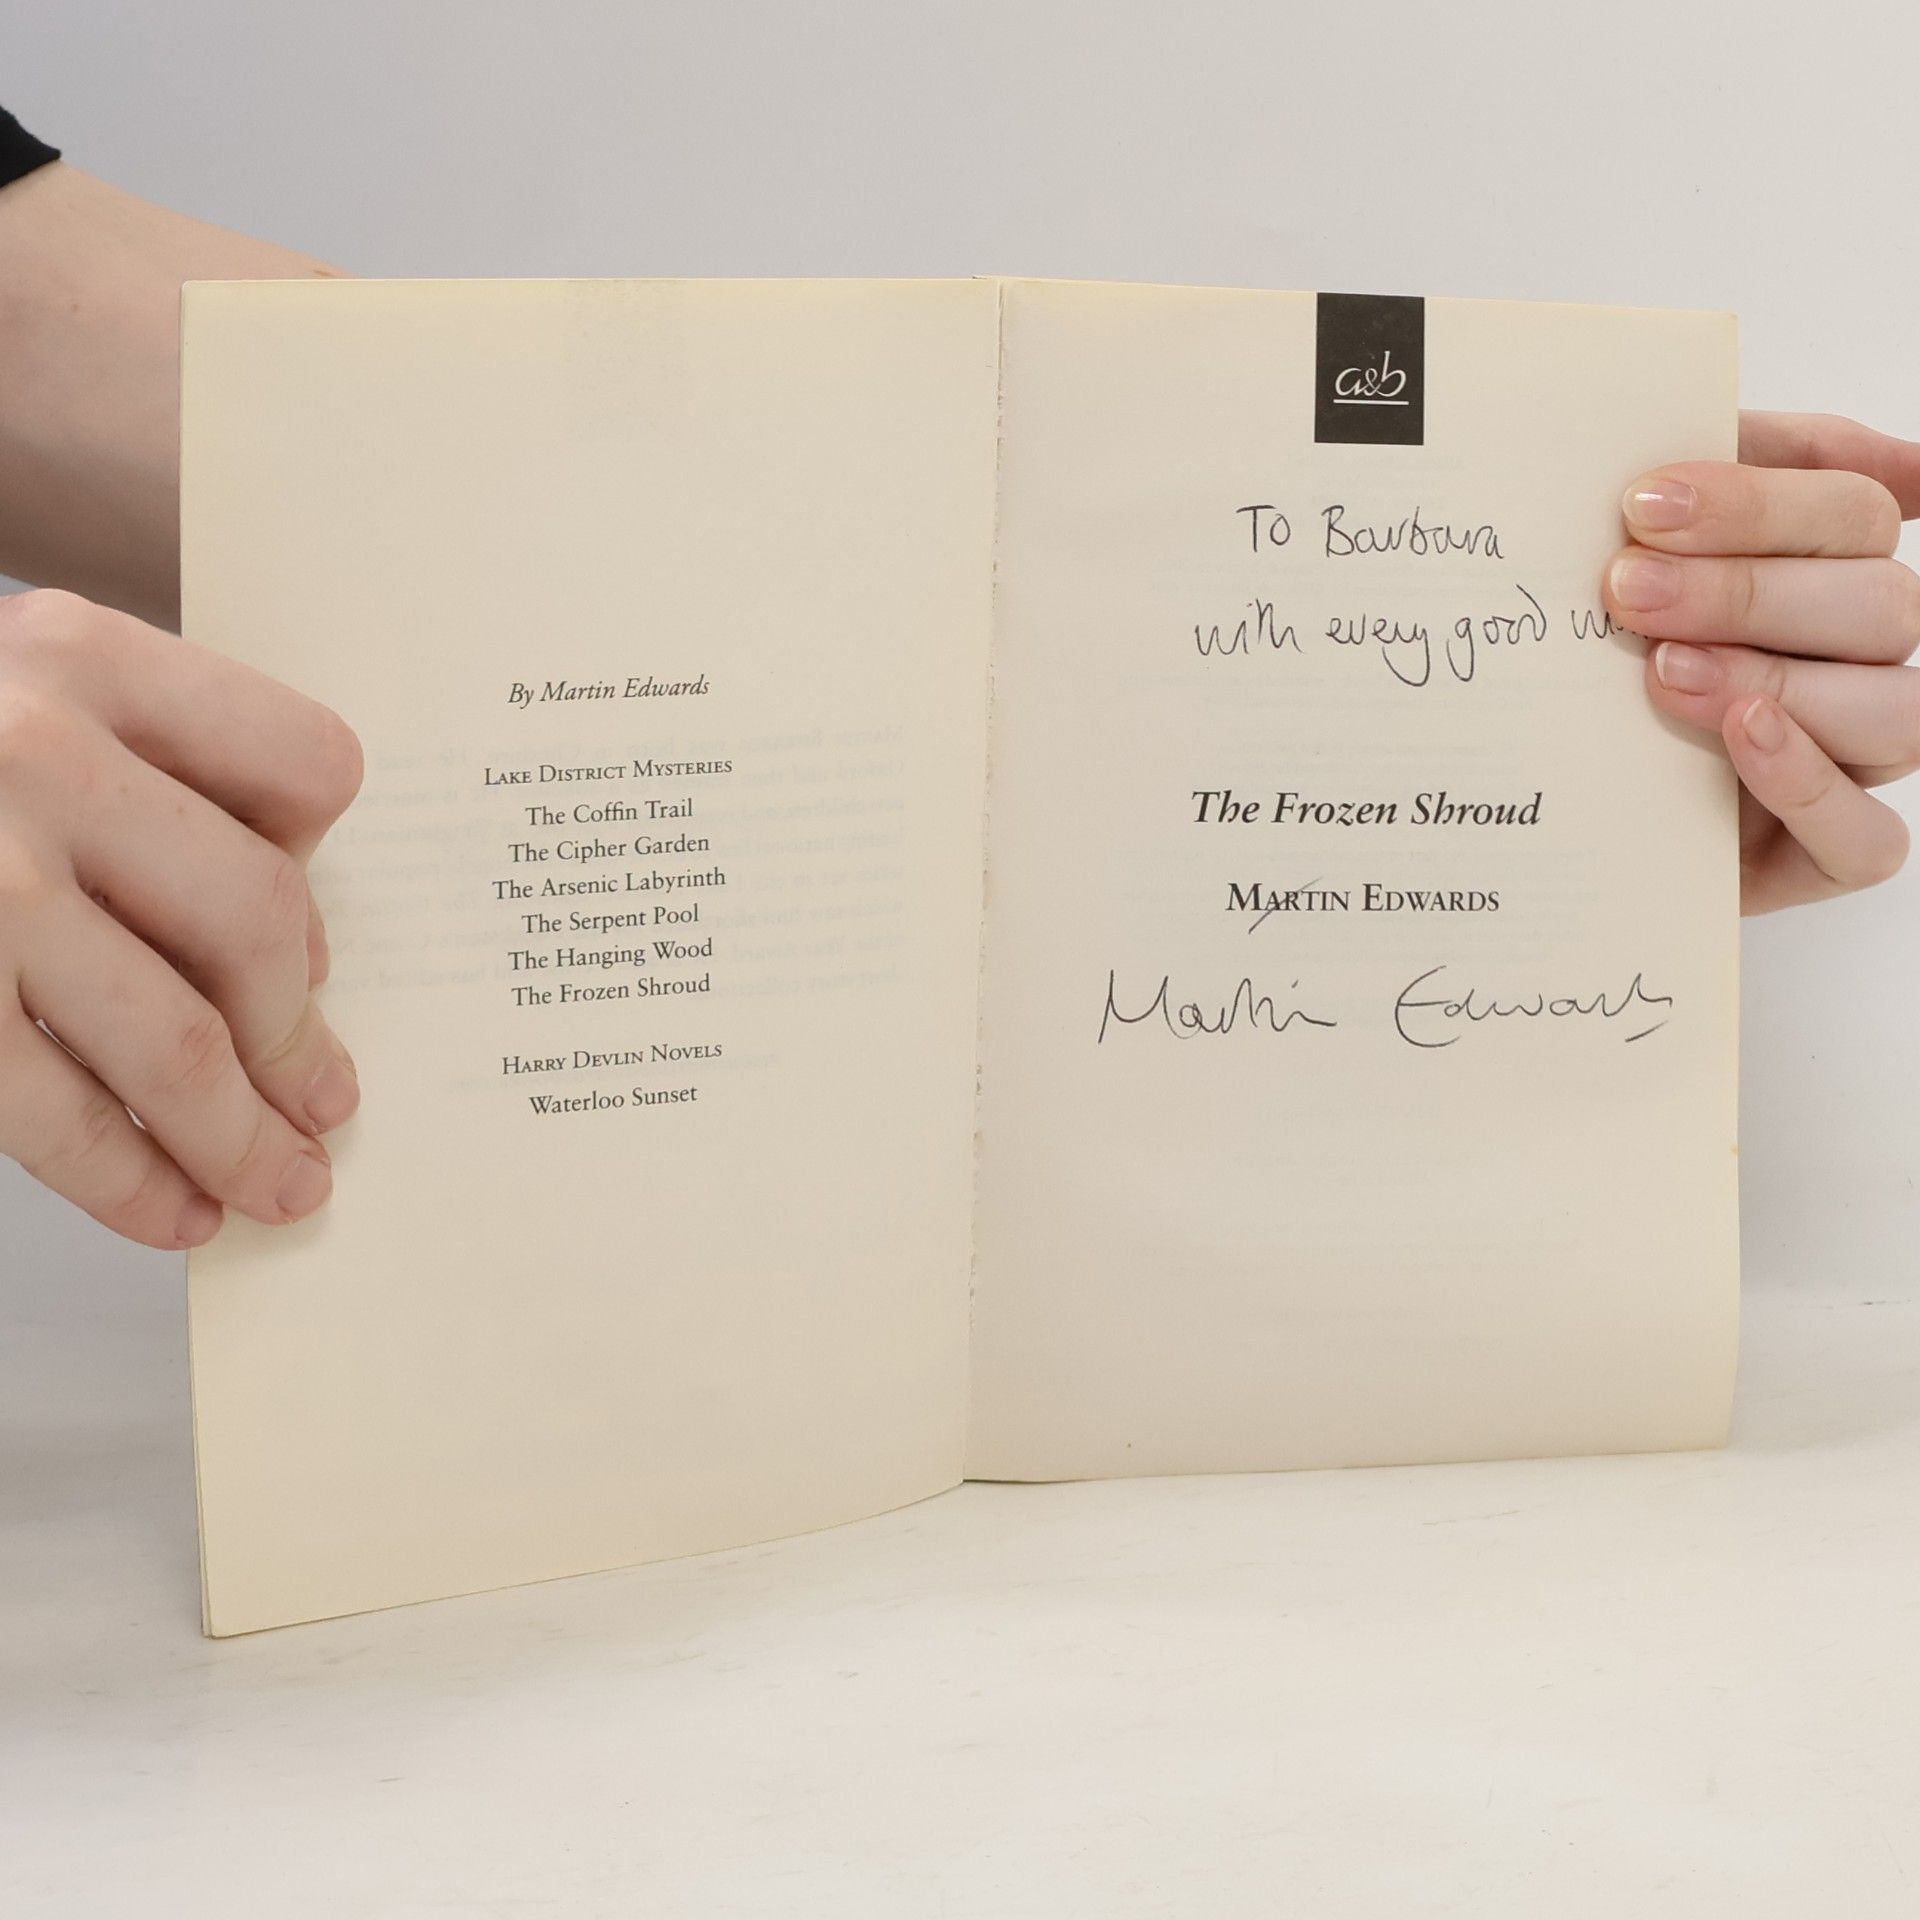 By Martin Edwards
LAKE DISTRICT MYSTERIES
The Coffin Trail
The Cipher Garden
The Arsenic Labyrinth
The Serpent Pool
The Hanging Wood
The Frozen Shroud
HARRY DEVLIN NOVELS
Waterloo Sunset
a&b
To Barbara
with every good
The Frozen Shroud
MARTIN EDWARDS
Martin Edwards